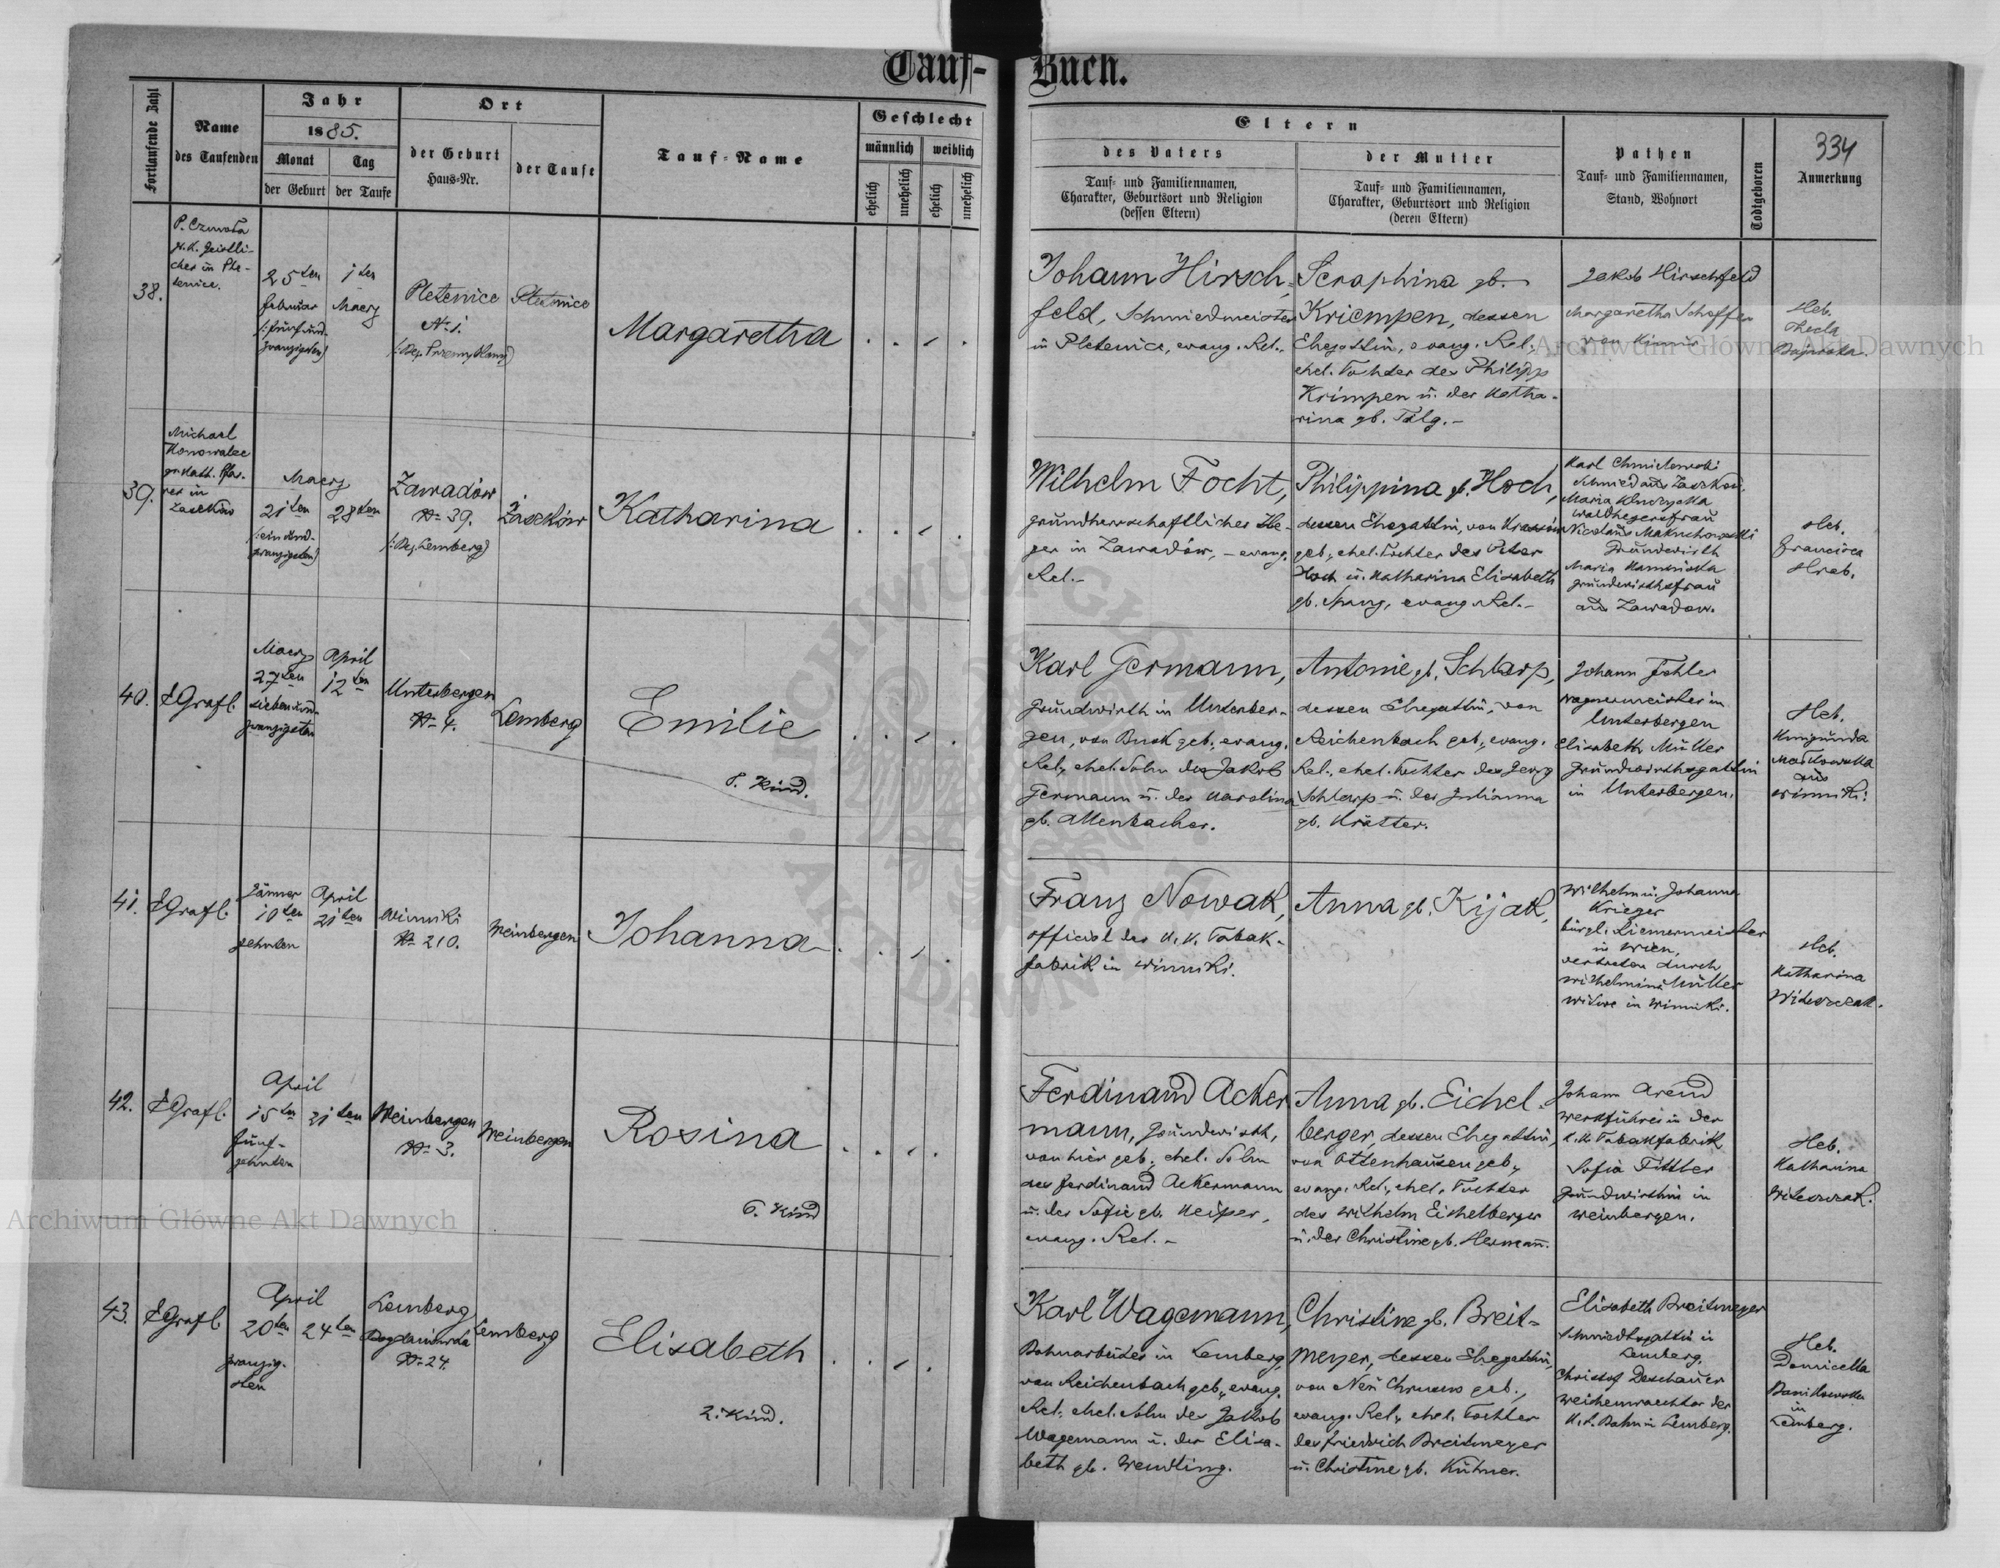 Tauf-Buch.
Fortlaufende Zahl
Name
des Taufenden
Jahr
1885.
Monat
Tag
der Geburt
der Taufe
Ort
der Geburt
Haus-Nr.
der Taufe
Tauf-Name
Geschlecht
männlich
weiblich
ehelich
unehelich
ehelich
unehelich
Eltern
des Vaters
Tauf- und Familiennamen,
Charakter, Geburtsort und Religion
(dessen Eltern)
der Mutter
Tauf- und Familiennamen,
Charakter, Geburtsort und Religion
(deren Eltern)
Pathen
Tauf- und Familiennamen,
Stand, Wohnort
Todtgeboren
334
Anmerkung
38.
25ten
Februar
(:fünf und-
zwanzigsten)
1ten
Maerz
Pletenice
Nr. 1.
(:Bez. Przemyślany)
Pletenice
Margaretha
Johann Hirsch-
feld, Schmiedmeister
in Pletenice, evang. Rel.
Seraphina gb.
Kriempen, dessen
Ehegattin, evang. Rel.
ehel. Tochter des Philipp
Krimpen u. der Katha-
rina gb. Talg.-
Jakob Hirschfeld
Margaretha Scheffer
Heb.
39.
Michael
Konowalec
gr. kath. Pfar-
rer in
Zaszków
Maerz
21ten
(:ein und-
zwanzigsten)
28ten
Zawadów
Nr. 39.
(:Bez. Lemberg)
Zaszków
Katharina
Wilhelm Focht,
grundherrschaftlicher He-
ger in Zawadów, - evang.
Rel.-
Philippina gb. Hoch,
dessen Ehegattin, von
geb., ehel. Tochter des Peter
Hoch u. Katharina Elisabeth
gb. Spang, evang. Rel.-
Karl Chmielewski
Schmied aus Zaszków
Maria
Waldhegersfrau
Nicolaus
Grundwirth
Maria Kaminska
Grundwirthsfrau
aus Zawadów.
Heb.
Francisca
Hreb.
40.
EGrafl.
Maerz
27ten
sieben und-
zwanzigsten
April
12ten
Unterbergen
Nr. 4.
Lemberg
Emilie
8. Kind.
Karl Germann,
Grundwirth in Unterber-
gen, von Busk geb., evang.
Rel., ehel. Sohn des Jakob
Germann u. der Karolina
gb. Attenbacher.
Antonie gb. Schlarp,
dessen Ehegattin, von
Reichenbach geb., evang.
Rel., ehel. Tochter des Georg
Schlarp u. der Julianna
gb. Krätter.
Johann
Wagnermeister in
Unterbergen
Elisabeth Müller
Grundwirthsgattin
in Unterbergen.
Heb.
Kunigunda
Maikowska
aus
Winniki.
41.
EGrafl.
Jänner
10ten
zehnten
April
21ten
Winniki
Nr. 210.
Weinbergen
Johanna
Franz Nowak,
Official der K. K. Tabak-
fabrik in Winniki.
Anna gb. Kijak,
Wilhelm u. Johanna
Krieger
bürgl. Riemermeister
in Wien,
vertreten durch
Wilhelmine Müller
Witwe in Winniki.
Heb.
Katharina
Witoszczak.
42.
EGrafl.
April
15ten
fünf-
zehnten
21ten
Weinbergen
Nr. 3.
Weinbergen
Rosina
6. Kind
Ferdinand Acker-
mann, Grundwirth,
von hier geb., ehel. Sohn
des Ferdinand Ackermann
u. der Sofie gb. Keiper,
evang. Rel.-
Anna gb. Eichel-
berger, dessen Ehegattin,
von Ottenhausen geb.,
evang. Rel., ehel. Tochter
des Wilhelm Eichelberger
u. der Christine gb. Hermann.
Johann Arend
Werkführer in der
k. k. Tabakfabrik
Sofia Fittler
Grundwirthin in
Weinbergen.
Heb.
Katharina
Witoszczak.
43.
EGrafl.
April
20ten
zwanzig-
sten
24ten
Lemberg
Bogdanówka
Nr. 24.
Lemberg
Elisabeth
2. Kind.
Karl Wagemann,
Bahnarbeiter in Lemberg,
von Reichenbach geb., evang.
Rel., ehel. Sohn des Jakob
Wagemann u. der Elisa-
beth gb. Wendling.
Christine gb. Breit-
meyer, dessen Ehegattin,
von Neu Chrusno geb.,
evang. Rel., ehel. Tochter
des Friedrich Breitmeyer
u. Christine gb. Kühner.
Elisabeth Breitmeyer
Schmiedsgattin in
Lemberg.
Christof Deschauer
Weichenwaechter der
K. K. Bahn in Lemberg.
Heb.
Domicella
Danikowska
in
Lemberg.
Archiwum Główne Akt Dawnych
Archiwum Główne Akt Dawnych